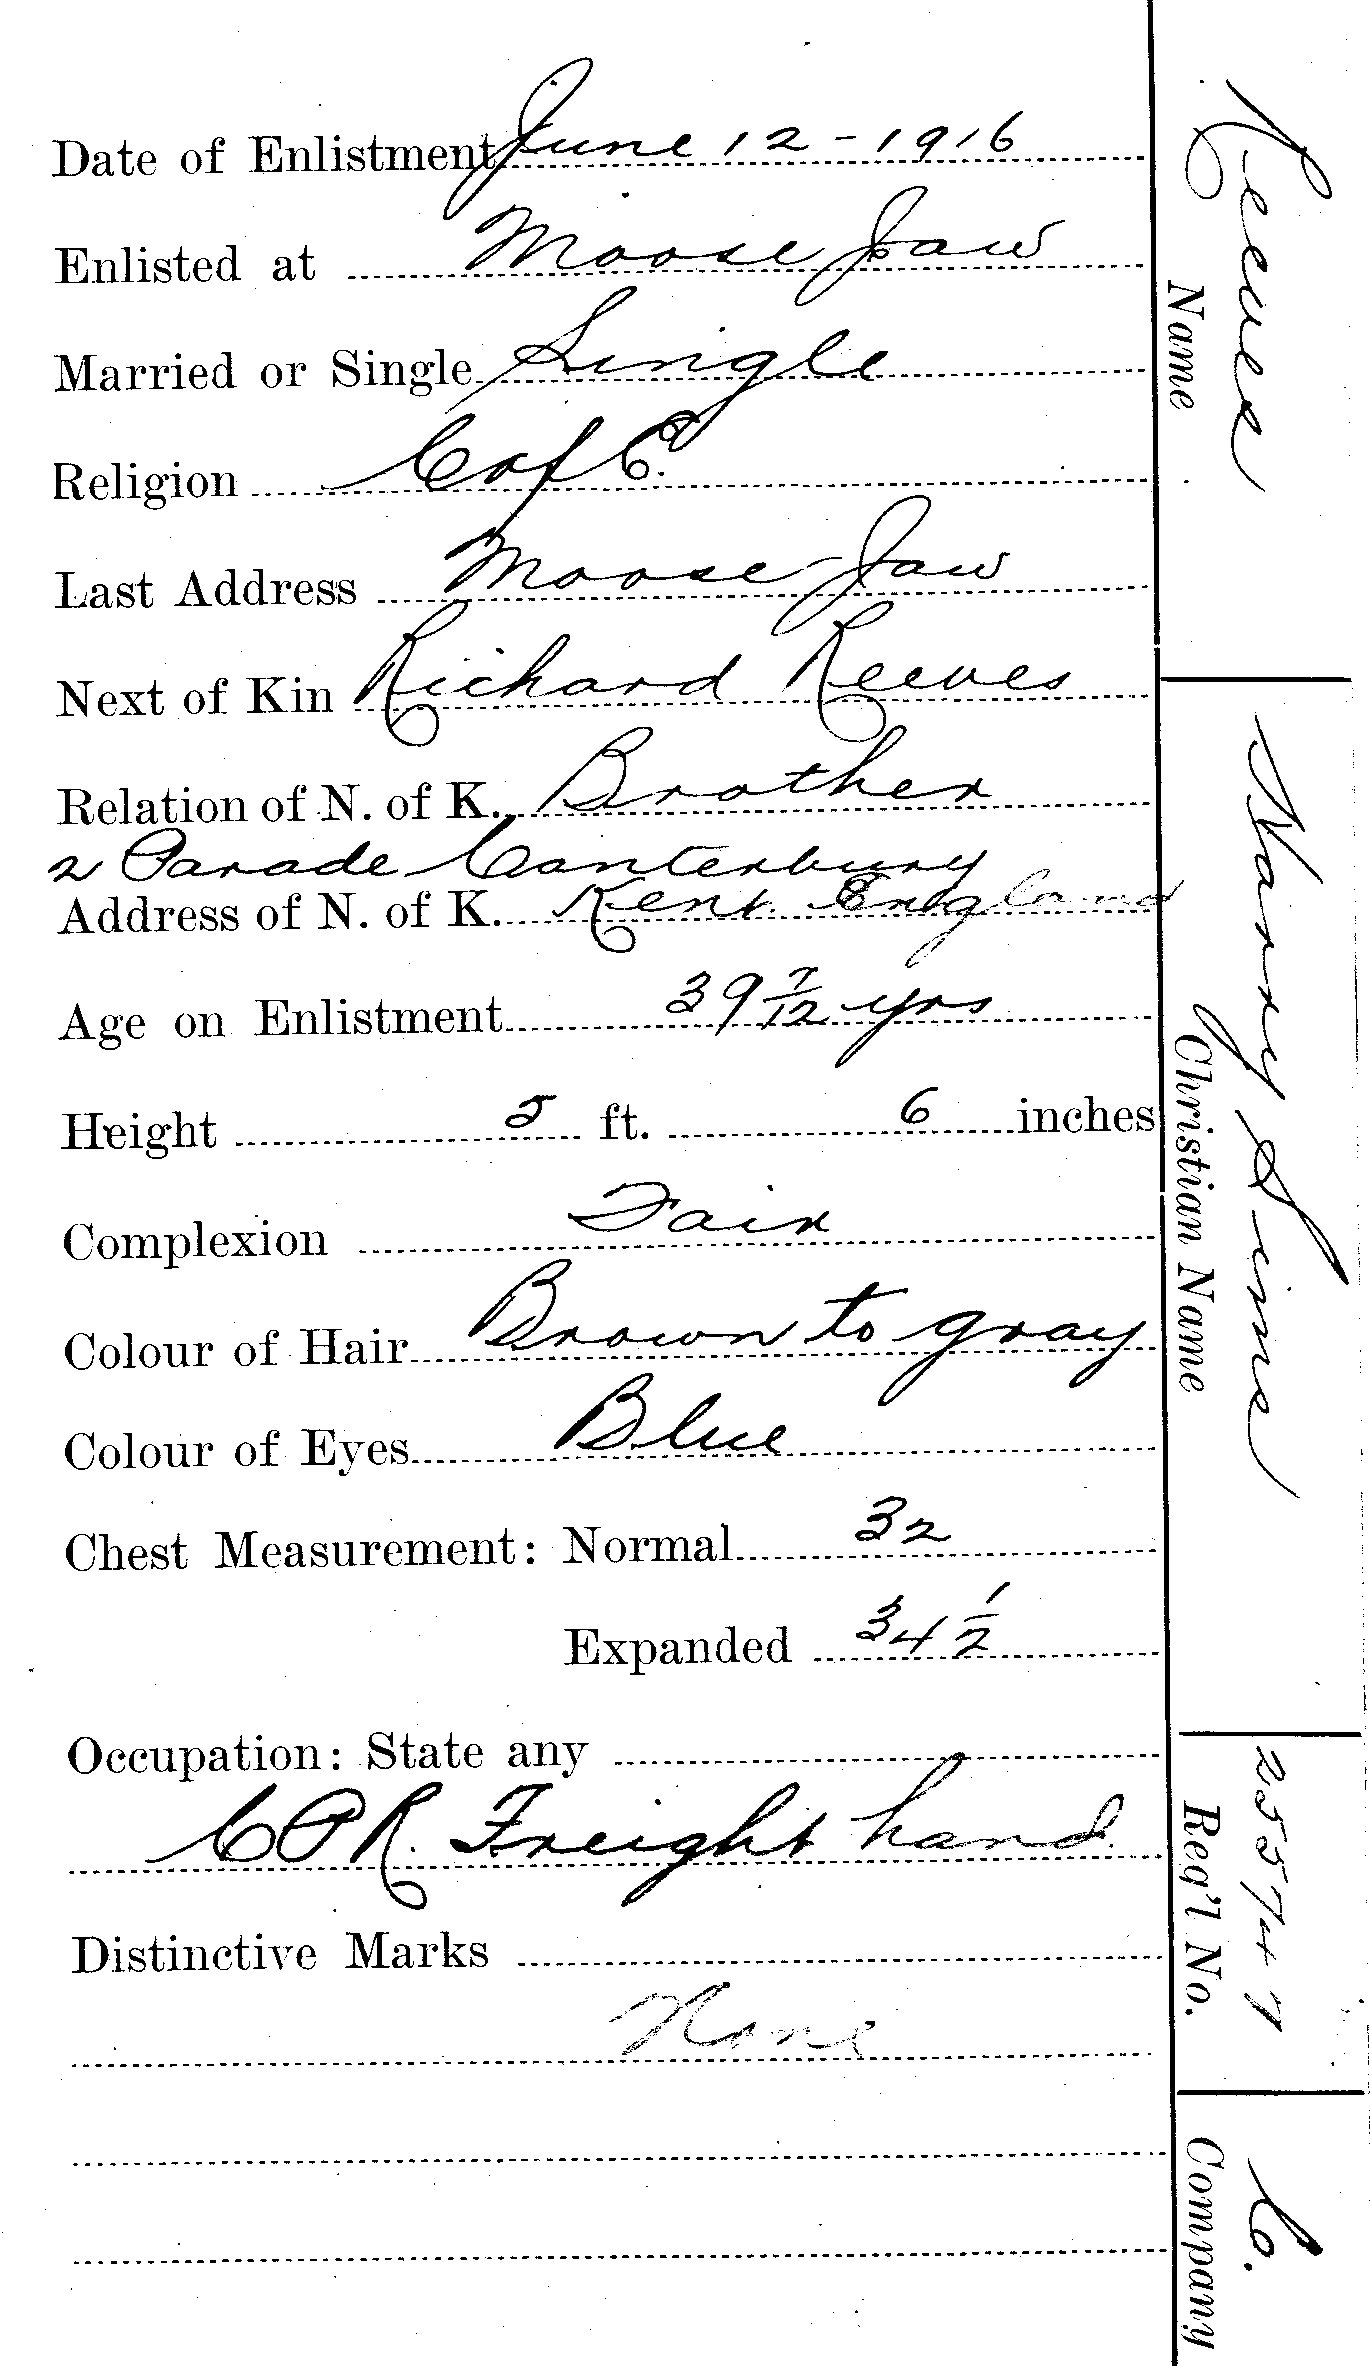 Date of Enlistment June 12 - 1916
Enlisted at Moose Jaw
Married or Single Single
Religion C of E.
Last Address Moose Jaw
Next of Kin Richard Reeves
Relation of N. of K. Brother
2 Parade Canterbury
Address of N. of K. Kent. England
Age on Enlistment 39 7/12 yrs
Height 5 ft. 6 inches
Complexion Fair
Colour of Hair Brown to gray
Colour of Eyes Blue
Chest Measurement: Normal 32
Expanded 34 1/2
Occupation: State any
C P R. Freight hand.
Distinctive Marks
None
Reeves
Name
Harry Sims
Christian Name
255747
Reg'l No.
Co.
Company